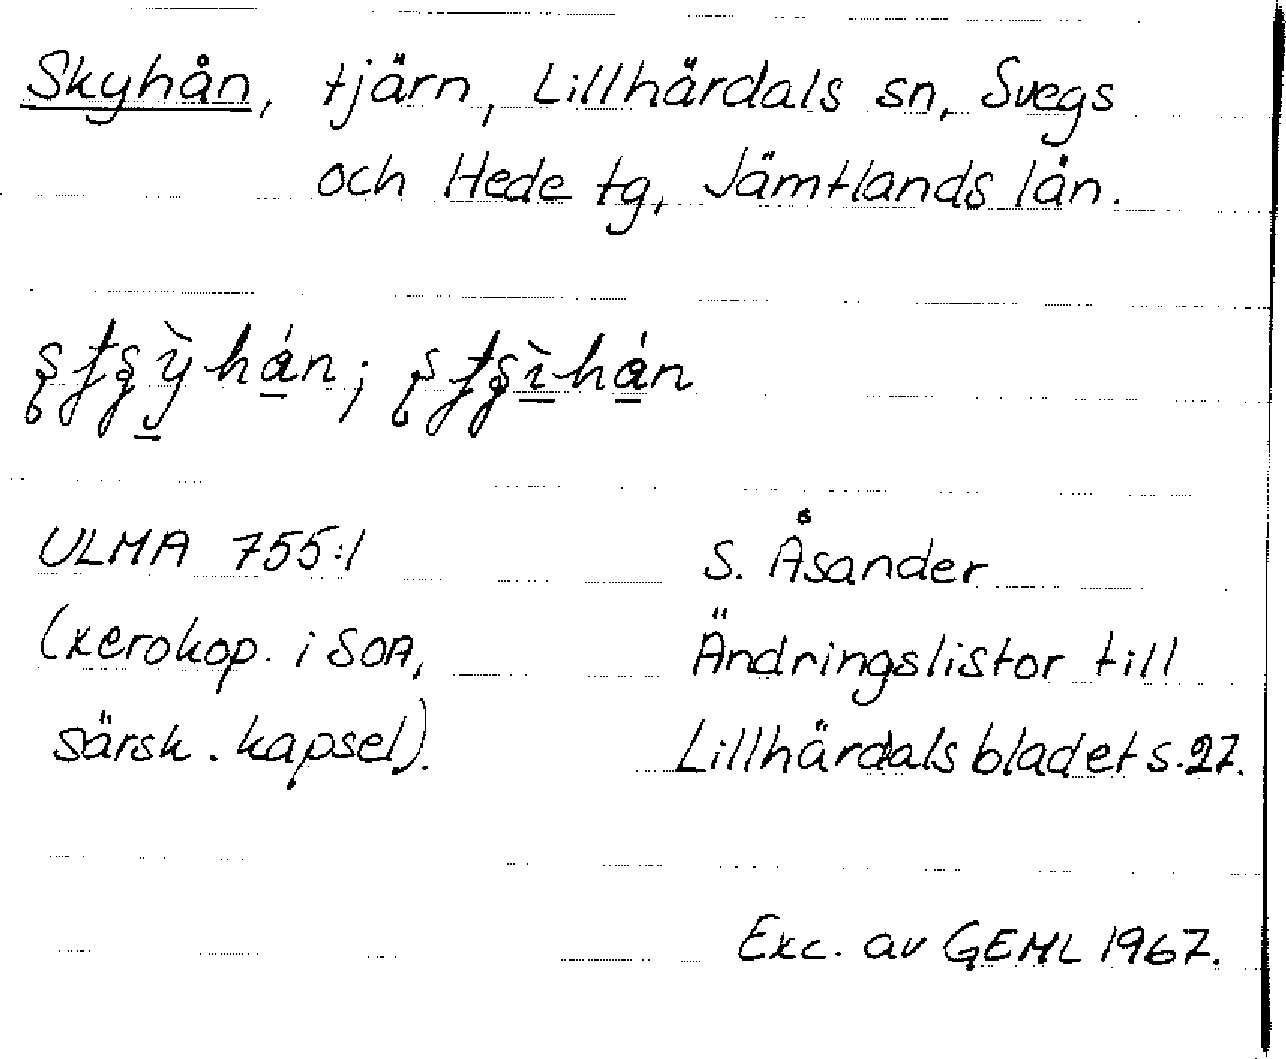 Skyhån, tjärn, Lillhärdals sn, Svegs
och Hede tg, Jämtlands län.
ULMA 755:1
(xerokop. i SOA,
särsk. kapsel).
S. Åsander
Ändringslistor till
Lillhärdalsbladet s. 27.
Exc. av GEML 1967.